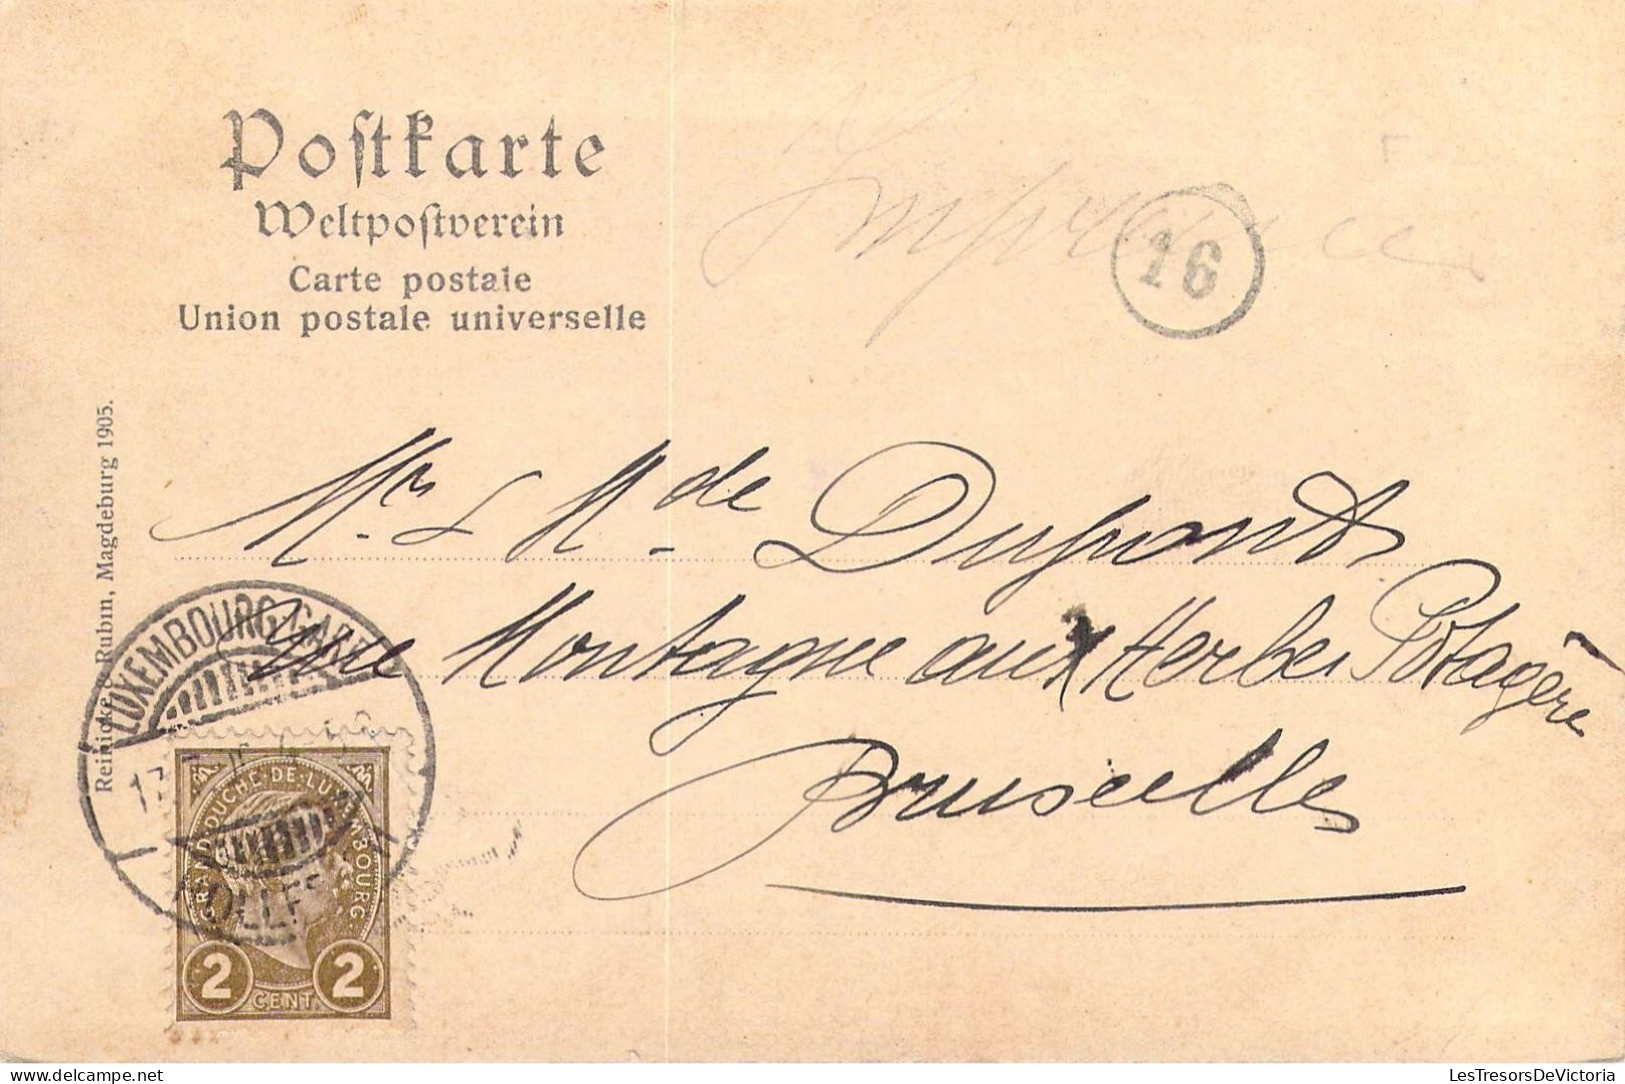 Postkarte
Weltpostverein
Carte postale
Union postale universelle
16
Reinicke & Rubin, Magdeburg 1905.
Mr. & Mde Dupont
Rue Montagne aux Herbes Potagère
Bruxelles
LUXEMBOURG-GARE
GRAND DUCHÉ DE LUXEMBOURG
2 CENT. 2
LesTresorsDeVictoria